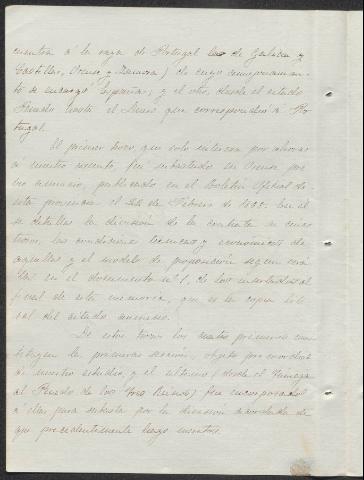 cuentra á la raya de Portugal de Galicia y
Castilla, Orense y Zamora) de cuyo
to se encargó España; y el otro, desde el citado
Penedo hasta el Duero que correspondió á Por
tugal.
El primer trozo, que solo interesa por ahora
á nuestro recuento, fué subastado en Orense por
anuncio, publicado en el Boletin Oficial de
esta provincia el 24 de Febrero de En él
se detallan la division de la contrata en
trozos, las condiciones técnicas y económicas de
aquellas y el modelo de proposicion segun
en el documento nº 1, de los insertados al
final de esta memoria, que es la copia lite
ral del citado anuncio.
De estos trozos los cuatro primeros cons
tituyen la primera seccion, objeto por
de nuestro estudio, y el último (desde el Támega
al Penedo de los Tres Reinos) fue incorporado
á ellos para subasta por la division acordada de
que precedentemente hago mencion.